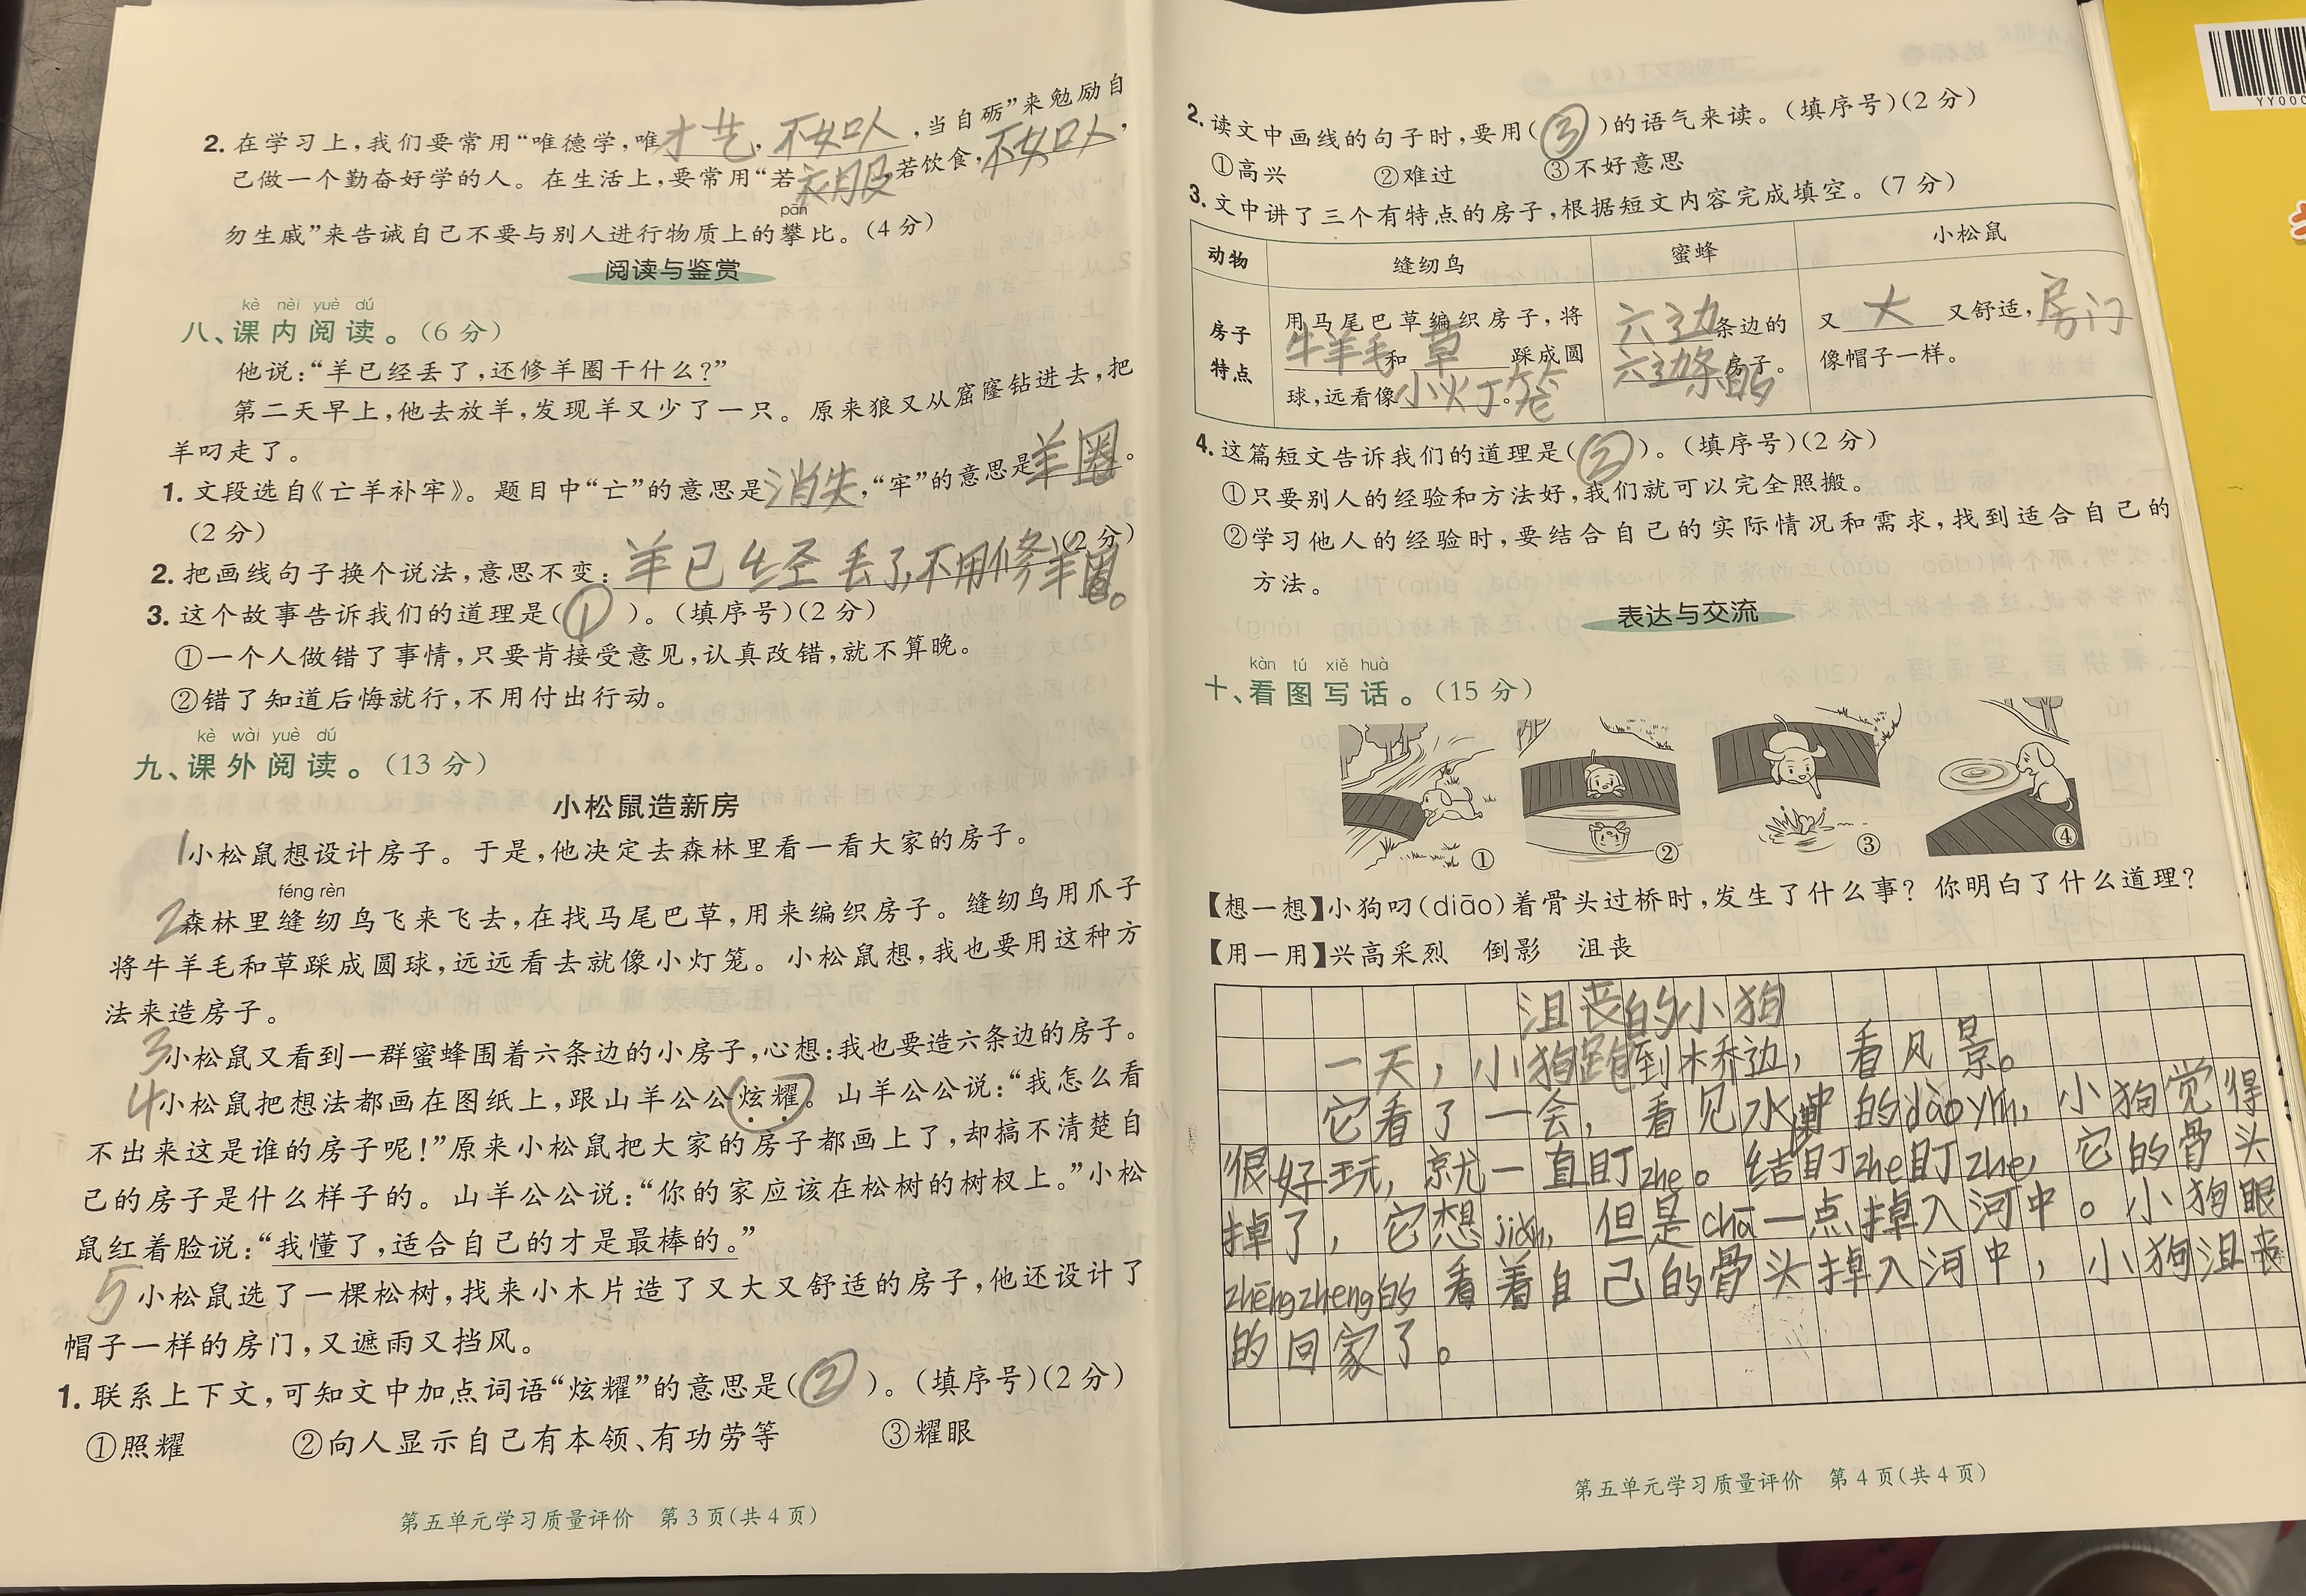 2. 在学习上,我们要常用“唯德学,唯才艺,不如人,当自砺”来勉励自
己做一个勤奋好学的人。在生活上,要常用“若衣服,若饮食,不如人,
pān
勿生戚”来告诫自己不要与别人进行物质上的攀比。(4分)
阅读与鉴赏
kè nèi yuè dú
八、课内阅读。(6分)
他说:“羊已经丢了,还修羊圈干什么?”
第二天早上,他去放羊,发现羊又少了一只。原来狼又从窟窿钻进去,把
羊叼走了。
1. 文段选自《亡羊补牢》。题目中“亡”的意思是消失,“牢”的意思是羊圈。
(2分)
2. 把画线句子换个说法,意思不变:羊已经丢了,不用修羊圈。(2分)
3. 这个故事告诉我们的道理是(①)。(填序号)(2分)
①一个人做错了事情,只要肯接受意见,认真改错,就不算晚。
②错了知道后悔就行,不用付出行动。
kè wài yuè dú
九、课外阅读。(13分)
小松鼠造新房
1小松鼠想设计房子。于是,他决定去森林里看一看大家的房子。
féng rèn
2森林里缝纫鸟飞来飞去,在找马尾巴草,用来编织房子。缝纫鸟用爪子
将牛羊毛和草踩成圆球,远远看去就像小灯笼。小松鼠想,我也要用这种方
法来造房子。
3小松鼠又看到一群蜜蜂围着六条边的小房子,心想:我也要造六条边的房子。
4小松鼠把想法都画在图纸上,跟山羊公公炫耀。山羊公公说:“我怎么看
不出来这是谁的房子呢!”原来小松鼠把大家的房子都画上了,却搞不清楚自
己的房子是什么样子的。山羊公公说:“你的家应该在松树的树杈上。”小松
鼠红着脸说:“我懂了,适合自己的才是最棒的。”
5小松鼠选了一棵松树,找来小木片造了又大又舒适的房子,他还设计了
帽子一样的房门,又遮雨又挡风。
1. 联系上下文,可知文中加点词语“炫耀”的意思是(②)。(填序号)(2分)
①照耀 ②向人显示自己有本领、有功劳等 ③耀眼
第五单元学习质量评价 第3页(共4页)
2. 读文中画线的句子时,要用(③)的语气来读。(填序号)(2分)
①高兴 ②难过 ③不好意思
3. 文中讲了三个有特点的房子,根据短文内容完成填空。(7分)
动物 缝纫鸟 蜜蜂 小松鼠
房子特点
用马尾巴草编织房子,将
牛羊毛和草踩成圆
球,远看像小火丁笼。
六边条边的
六边条的房子。
又大又舒适,房门
像帽子一样。
4. 这篇短文告诉我们的道理是(②)。(填序号)(2分)
①只要别人的经验和方法好,我们就可以完全照搬。
②学习他人的经验时,要结合自己的实际情况和需求,找到适合自己的
方法。
表达与交流
kàn tú xiě huà
十、看图写话。(15分)
① ② ③ ④
【想一想】小狗叼(diāo)着骨头过桥时,发生了什么事?你明白了什么道理?
【用一用】兴高采烈 倒影 沮丧
沮丧的小狗
一天,小狗跑到桥边,看风景。
它看了一会,看见水中的dào yǐn,小狗觉得
很好玩,就一直盯zhe。结盯zhe盯zhe,它的骨头
掉了,它想jiǎn,但是chā一点掉入河中。小狗眼
zhēngzheng的看着自己的骨头掉入河中,小狗沮丧
的回家了。
第五单元学习质量评价 第4页(共4页)